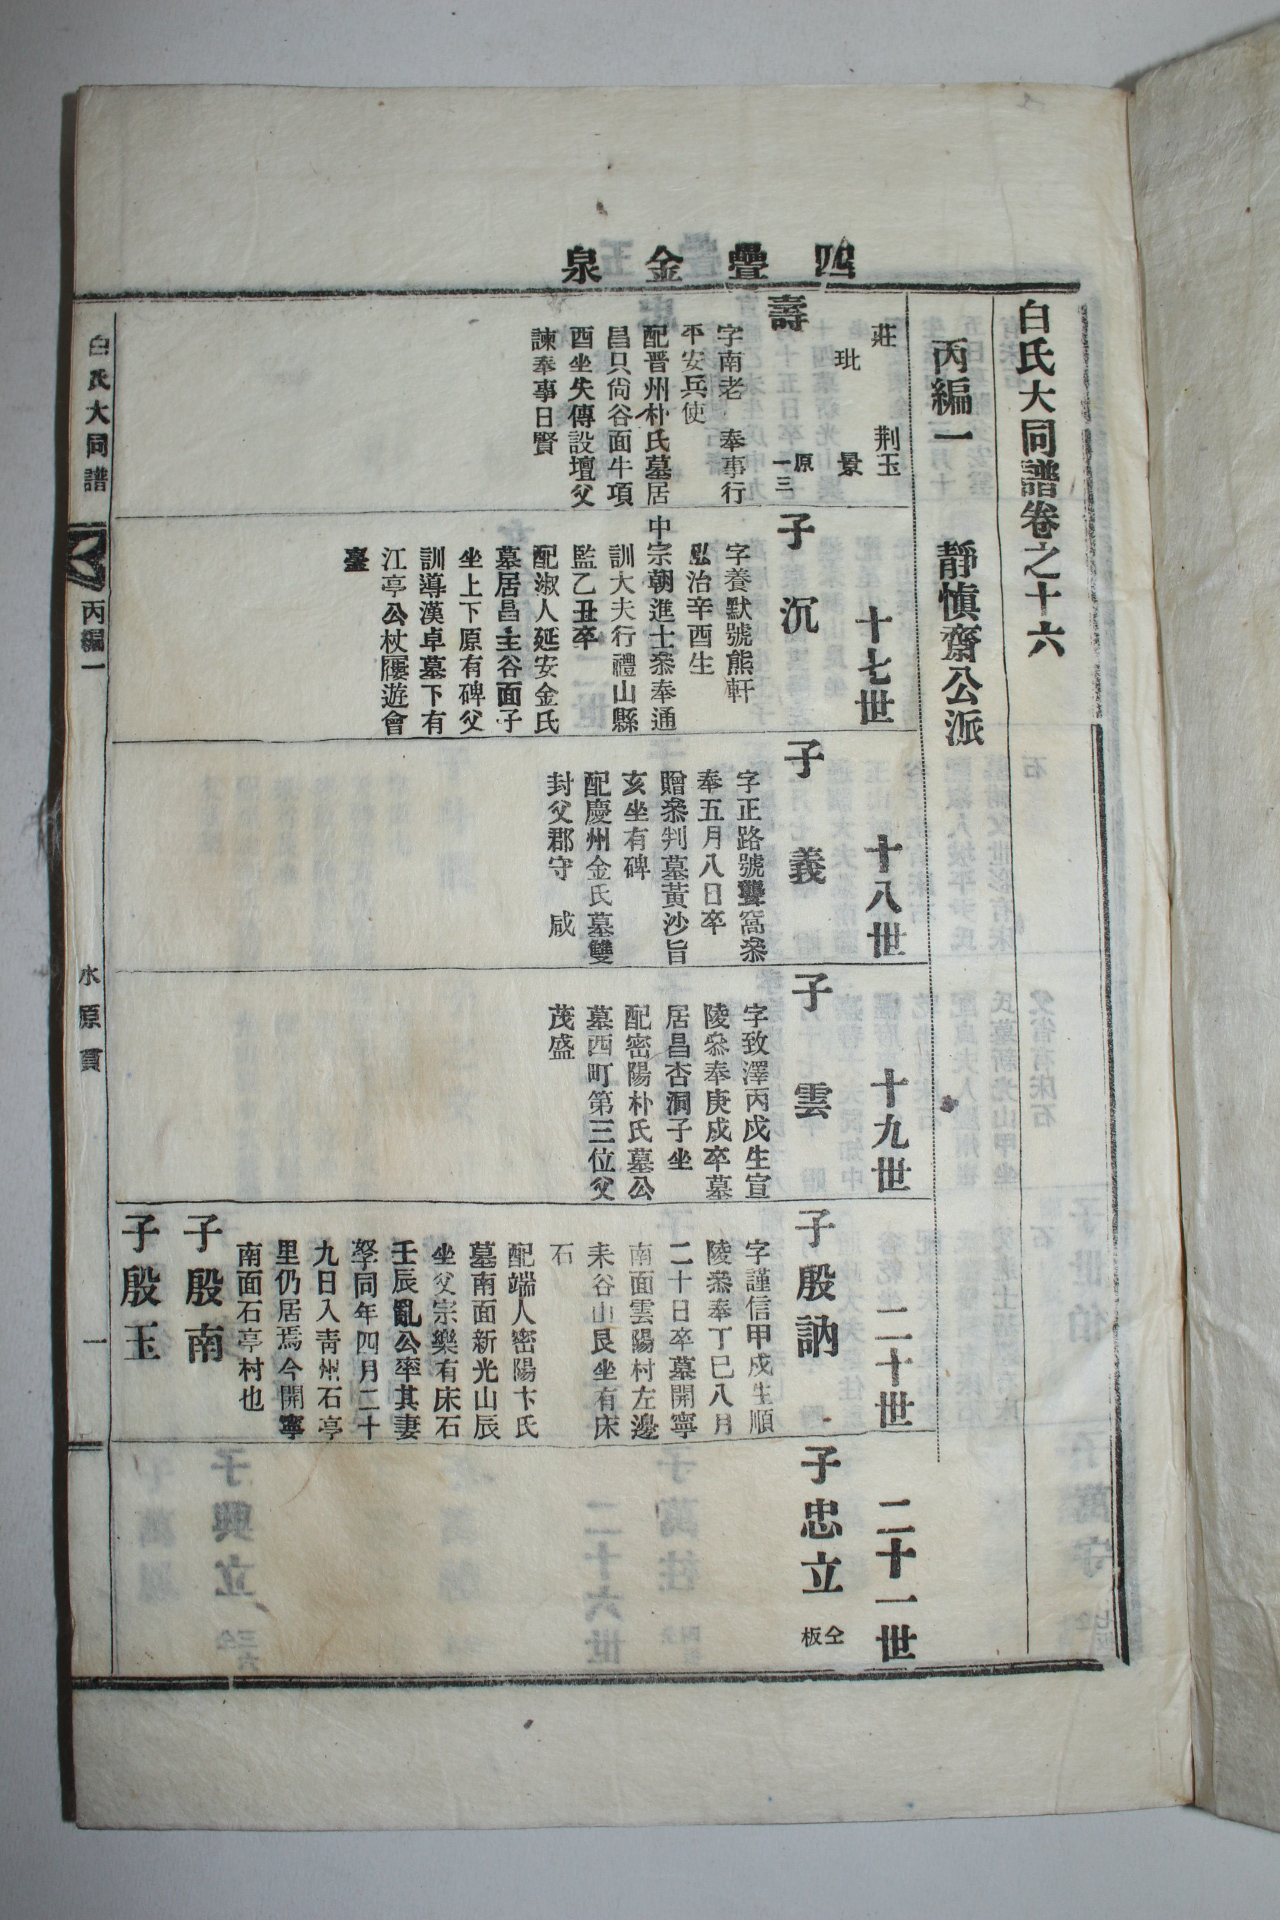 四疊金泉
白氏大同譜卷之十六
丙編一 靜愼齋公派
莊 荆玉
玭 景
壽
原一三
字南老 奉事行
平安兵使
配晋州朴氏墓居
昌只尙谷面牛項
酉坐失傳設壇父
諫奉事日賢
十七世
子沉
字養默號熊軒
弘治辛酉生
中宗朝進士叅奉通
訓大夫行禮山縣
監乙丑卒
配淑人延安金氏
墓居昌主谷面子
坐上下原有碑父
訓導漢卓墓下有
江亭公杖屨遊會
臺
十八世
子義
字正路號聾窩叅
奉五月八日卒
贈叅判墓黃沙旨
亥坐有碑
配慶州金氏墓雙
封父郡守 咸
十九世
子雲
字致澤丙戌生宣
陵叅奉庚戌卒墓
居昌杏洞子坐
配密陽朴氏墓公
墓西町第三位父
茂盛
二十世
子殷訥
字謹信甲戌生順
陵叅奉丁巳八月
二十日卒墓開寧
南面雲陽村左邊
耒谷山艮坐有床
石
配端人密陽卞氏
墓南面新光山辰
坐父宗樂有床石
壬辰亂公率其妻
孥同年四月二十
九日入靑州石亭
里仍居焉今開寧
南面石亭村也
子殷南
子殷玉
二十一世
子忠立 仝板
白氏大同譜 丙編一 水原貫 一